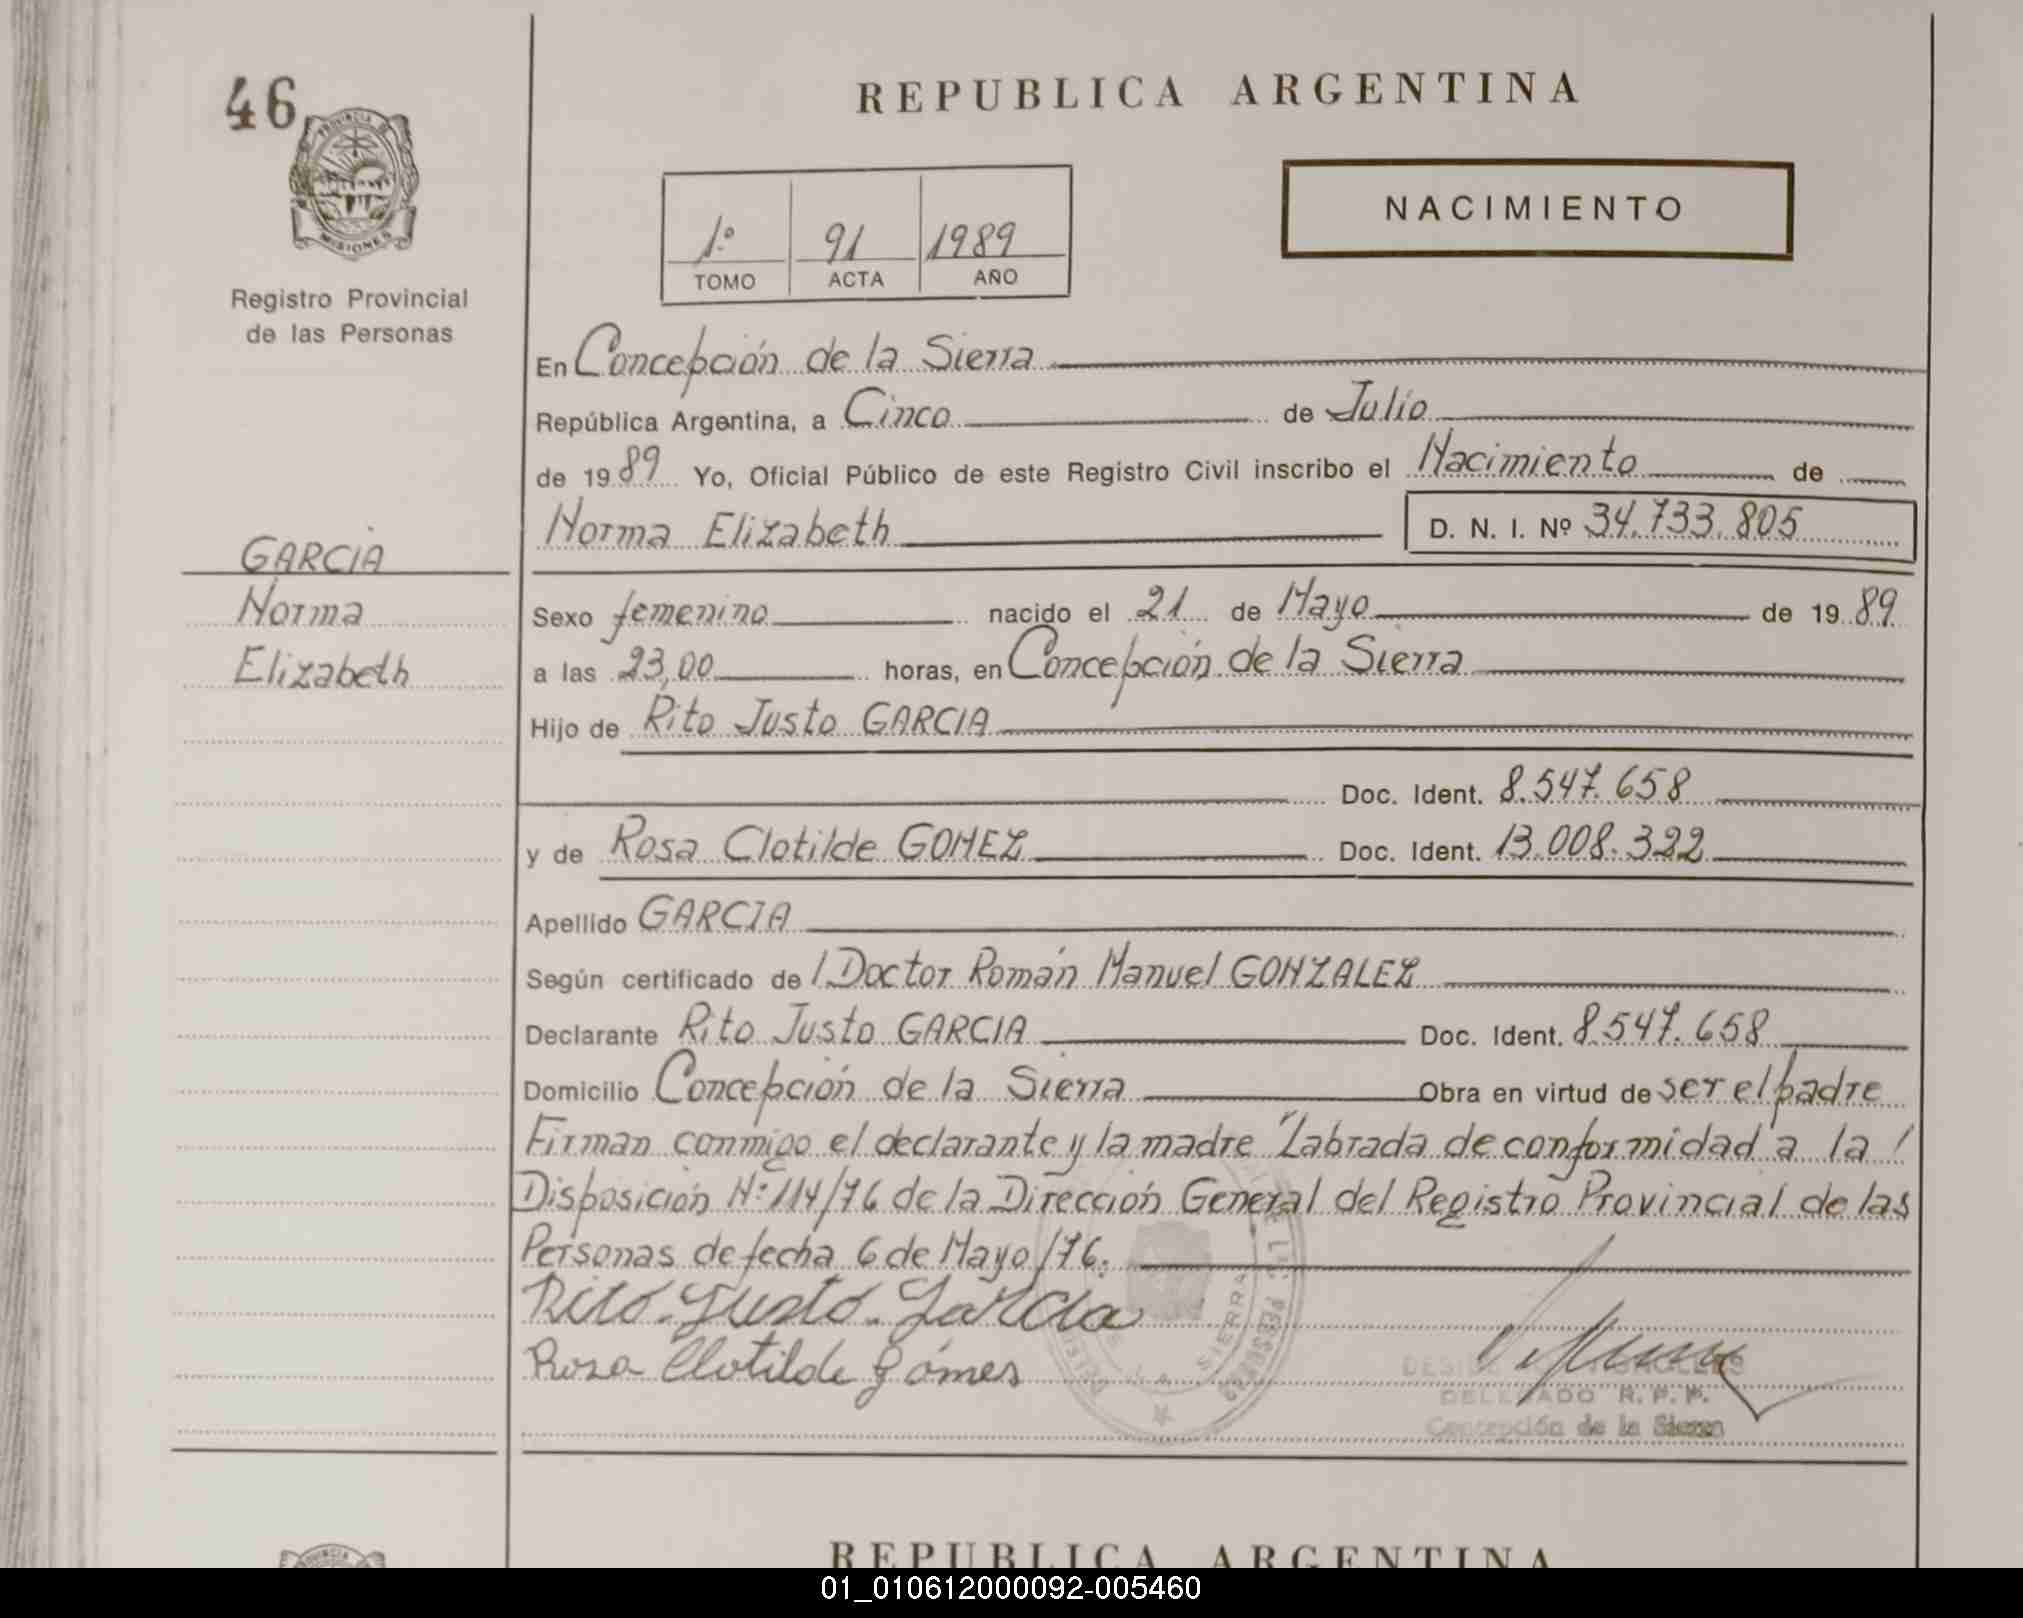 46
REPUBLICA ARGENTINA
PROVINCIA DE
MISIONES
NACIMIENTO
1º 91 1989
TOMO ACTA AÑO
Registro Provincial
de las Personas
En Concepción de la Sierra
República Argentina, a Cinco de Julio
de 1989 Yo, Oficial Público de este Registro Civil inscribo el Nacimiento de
Norma Elizabeth D. N. I. Nº 34.733.805
GARCIA
Norma
Elizabeth
Sexo femenino nacido el 21 de Mayo de 1989
a las 23,00 horas, en Concepción de la Sierra
Hijo de Rito Justo GARCIA
Doc. Ident. 8.547.658
y de Rosa Clotilde GOMEZ Doc. Ident. 13.008.322
Apellido GARCIA
Según certificado de l Doctor Román Manuel GONZALEZ
Declarante Rito Justo GARCIA Doc. Ident. 8.547.658
Domicilio Concepción de la Sierra Obra en virtud de ser el padre
Firman conmigo el declarante y la madre "Labrada de conformidad a la /
Disposición Nº 114/76 de la Dirección General del Registro Provincial de las
Personas de fecha 6 de Mayo/76.
Rito Justo Garcia
Rosa Clotilde Gómes
DELEGADO R. P. P.
Concepción de la Sierra
REPUBLICA ARGENTINA
01_010612000092-005460